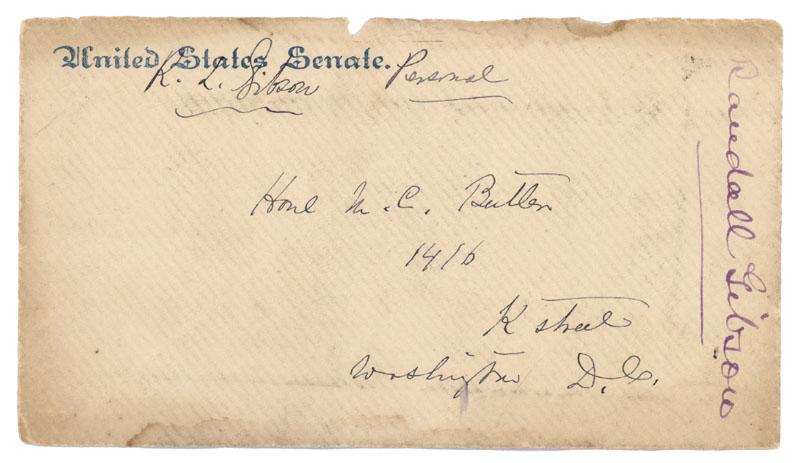 United States Senate.
R. L. Gibson Personal
Honl M. C. Butler
1416
K street
Washington D.C.
Randall Gibson